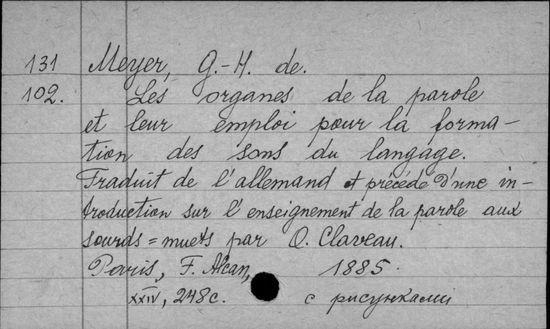 131 Meyer, G.-H. de.
102. Les organes de la parole
et leur emploi pour la forma-
tion des sons du langage.
Traduit de l'allemand et précédé d'une in-
troduction sur l'enseignement de la parole aux
sourds=muets par O. Claveau.
Paris, F. Alcan, 1885.
XXIV, 248 с. с рисунками